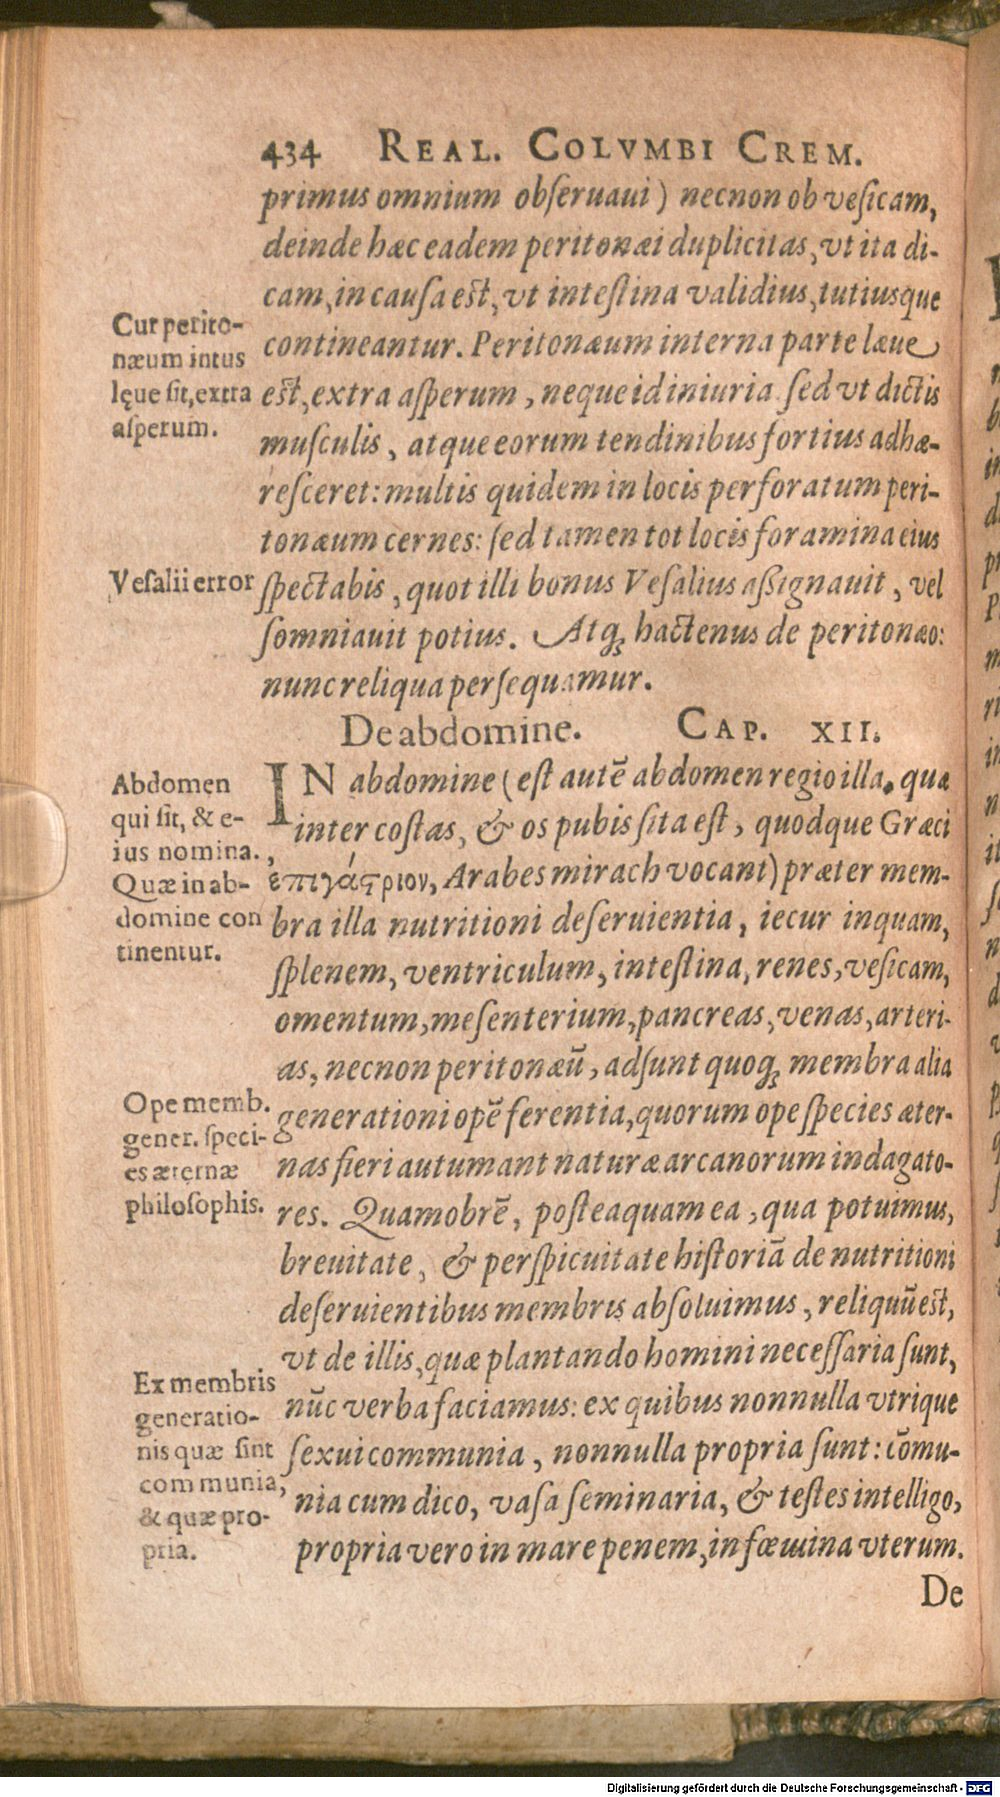 434 REAL. COLVMBI CREM.
primus omnium obſeruaui) necnon ob veſicam,
deinde hæc eadem peritonæi duplicitas, vt ita di-
cam, in cauſa est, vt inteſtina validius, tutiusque
contineantur. Peritonæum interna parte læue
est, extra aſperum, neque id iniuria ſed vt dictis
muſculis, atque eorum tendinibus fortius adhæ-
reſceret: multis quidem in locis perforatum peri-
tonæum cernes: ſed tamen tot locis foramina eius
ſpectabis, quot illi bonus Veſalius aſsignauit, vel
ſomniauit potius. Atq; hactenus de peritonæo:
nunc reliqua perſequamur.
Cur perito-
næum intus
lęue ſit, extra
aſperum.
Veſalii error
De abdomine. CAP. XII.
IN abdomine (eſt autē abdomen regio illa, quæ
inter coſtas, & os pubis ſita eſt, quodque Græci
ἐπιγάϛριον, Arabes mirach vocant) præter mem-
bra illa nutritioni deſeruientia, iecur inquam,
ſplenem, ventriculum, inteſtina, renes, veſicam,
omentum, meſenterium, pancreas, venas, arteri-
as, necnon peritonæū, adſunt quoq; membra alia
generationi opē ferentia, quorum ope ſpecies æter-
nas fieri autumant naturæ arcanorum indagato-
res. Quamobrē, poſteaquam ea, qua potuimus,
breuitate, & perſpicuitate hiſtoriā de nutritioni
deſeruientibus membris abſoluimus, reliquū est,
vt de illis, quæ plantando homini neceſſaria ſunt,
nūc verba faciamus: ex quibus nonnulla vtrique
ſexui communia, nonnulla propria ſunt: cōmu-
nia cum dico, vaſa ſeminaria, & teſtes intelligo,
propria vero in mare penem, in fœmina vterum.
Abdomen
qui ſit, & e-
ius nomina.
Quæ in ab-
domine con
tinentur.
Ope memb.
gener. ſpeci-
es æternæ
philoſophis.
Ex membris
generatio-
nis quæ ſint
communia,
& quæ pro-
pria.
De
Digitalisierung gefördert durch die Deutsche Forschungsgemeinschaft - DFG